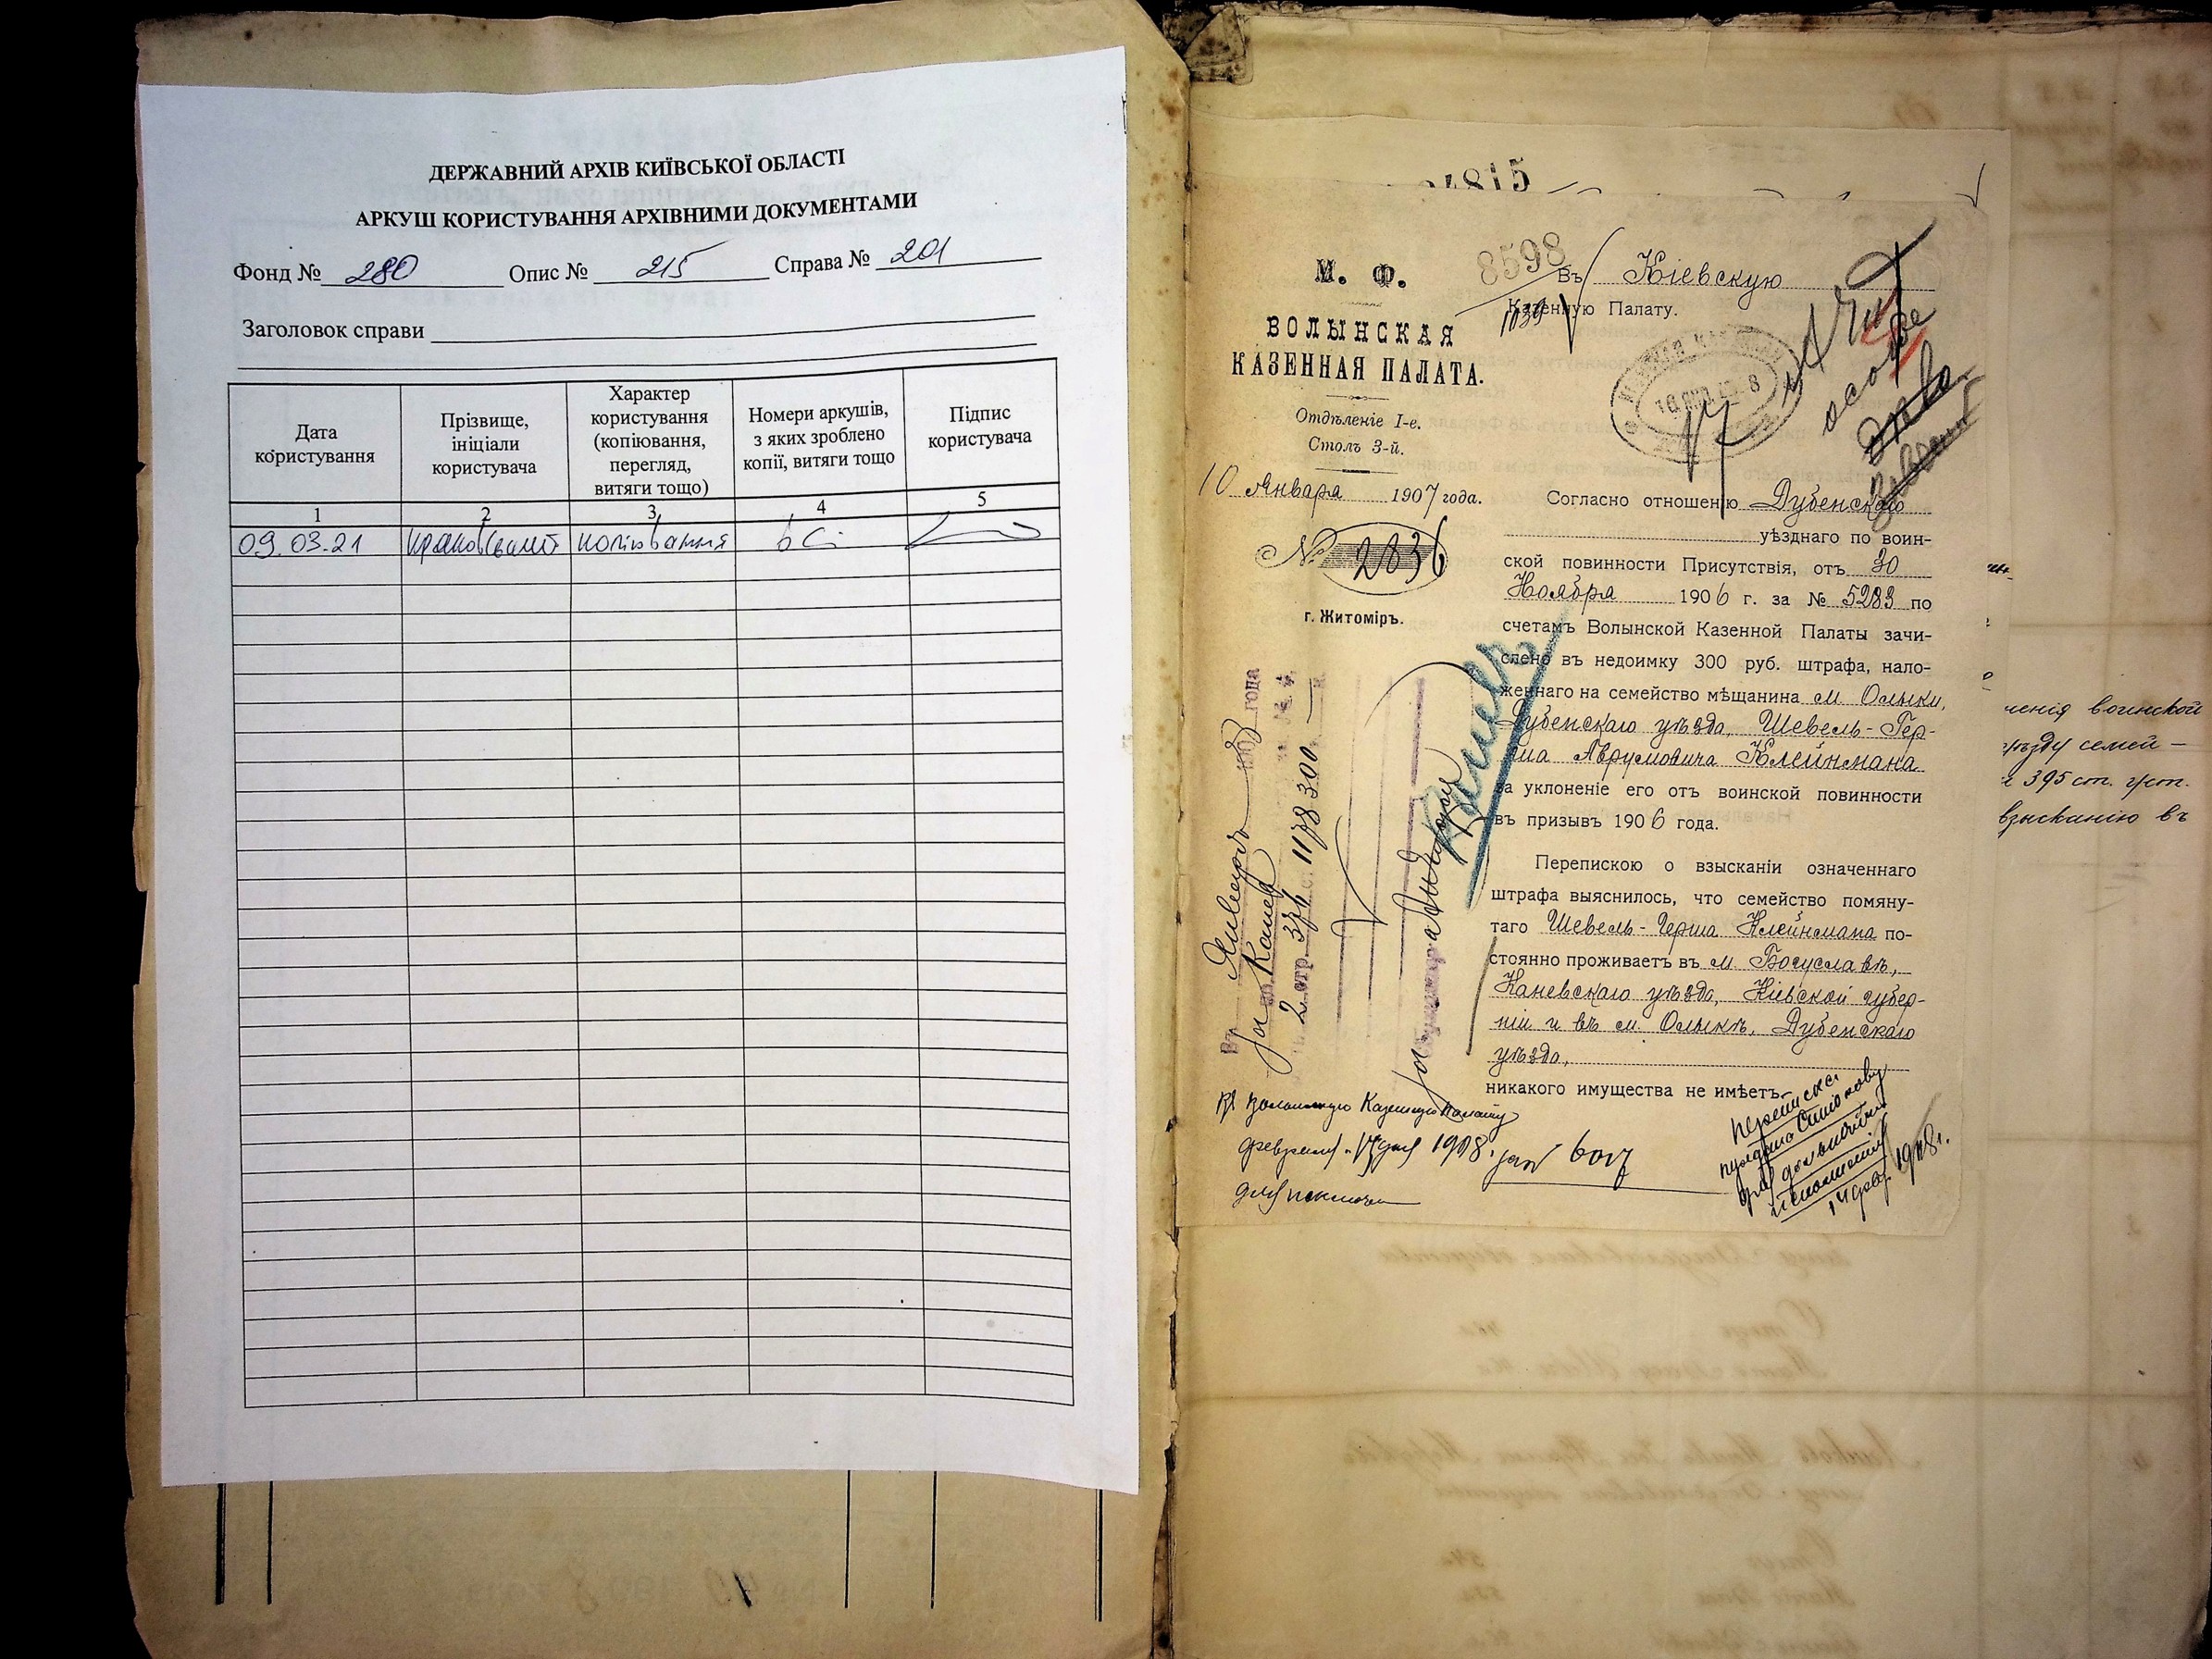 ДЕРЖАВНИЙ АРХІВ КИЇВСЬКОЇ ОБЛАСТІ
АРКУШ КОРИСТУВАННЯ АРХІВНИМИ ДОКУМЕНТАМИ
Фонд № 280 Опис № 215 Справа № 201
Заголовок справи
Дата користування
Прізвище, ініціали користувача
Характер користування (копіювання, перегляд, витяги тощо)
Номери аркушів, з яких зроблено копії, витяги тощо
Підпис користувача
1 2 3 4 5
09.03.21 копіювання всі
4815
8598
М. Ф.
ВОЛЫНСКАЯ
КАЗЕННАЯ ПАЛАТА.
Отдѣленіе I-е.
Столъ 3-й.
10 Января 1907 года.
№ 2836
г. Житоміръ.
Въ Кіевскую
Казенную Палату.
1039
Согласно отношенію Дубенскаго
уѣзднаго по воин-
ской повинности Присутствія, отъ 30
Ноября 1906 г. за № 5283 по
счетамъ Волынской Казенной Палаты зачи-
слено въ недоимку 300 руб. штрафа, нало-
женнаго на семейство мѣщанина м. Олыки,
Дубенскаго уѣзда, Шевель-Гер-
ша Аврумовича Клейнмана
за уклоненіе его отъ воинской повинности
въ призывъ 1906 года.
Перепискою о взысканіи означеннаго
штрафа выяснилось, что семейство помяну-
таго Шевель-Герша Клейнмана по-
стоянно проживаетъ въ м. Богуславѣ,
Каневскаго уѣзда, Кіевской губер-
ніи и въ м. Олыкѣ, Дубенскаго
уѣзда,
никакого имущества не имѣетъ.
года
2 стр. 376 с. 1178 300
Каневъ
Казенную Палату
февраля 17 дня 1908.
1908 г.
ченія воинской
уѣзду семей-
395 ст. уст.
взысканію въ